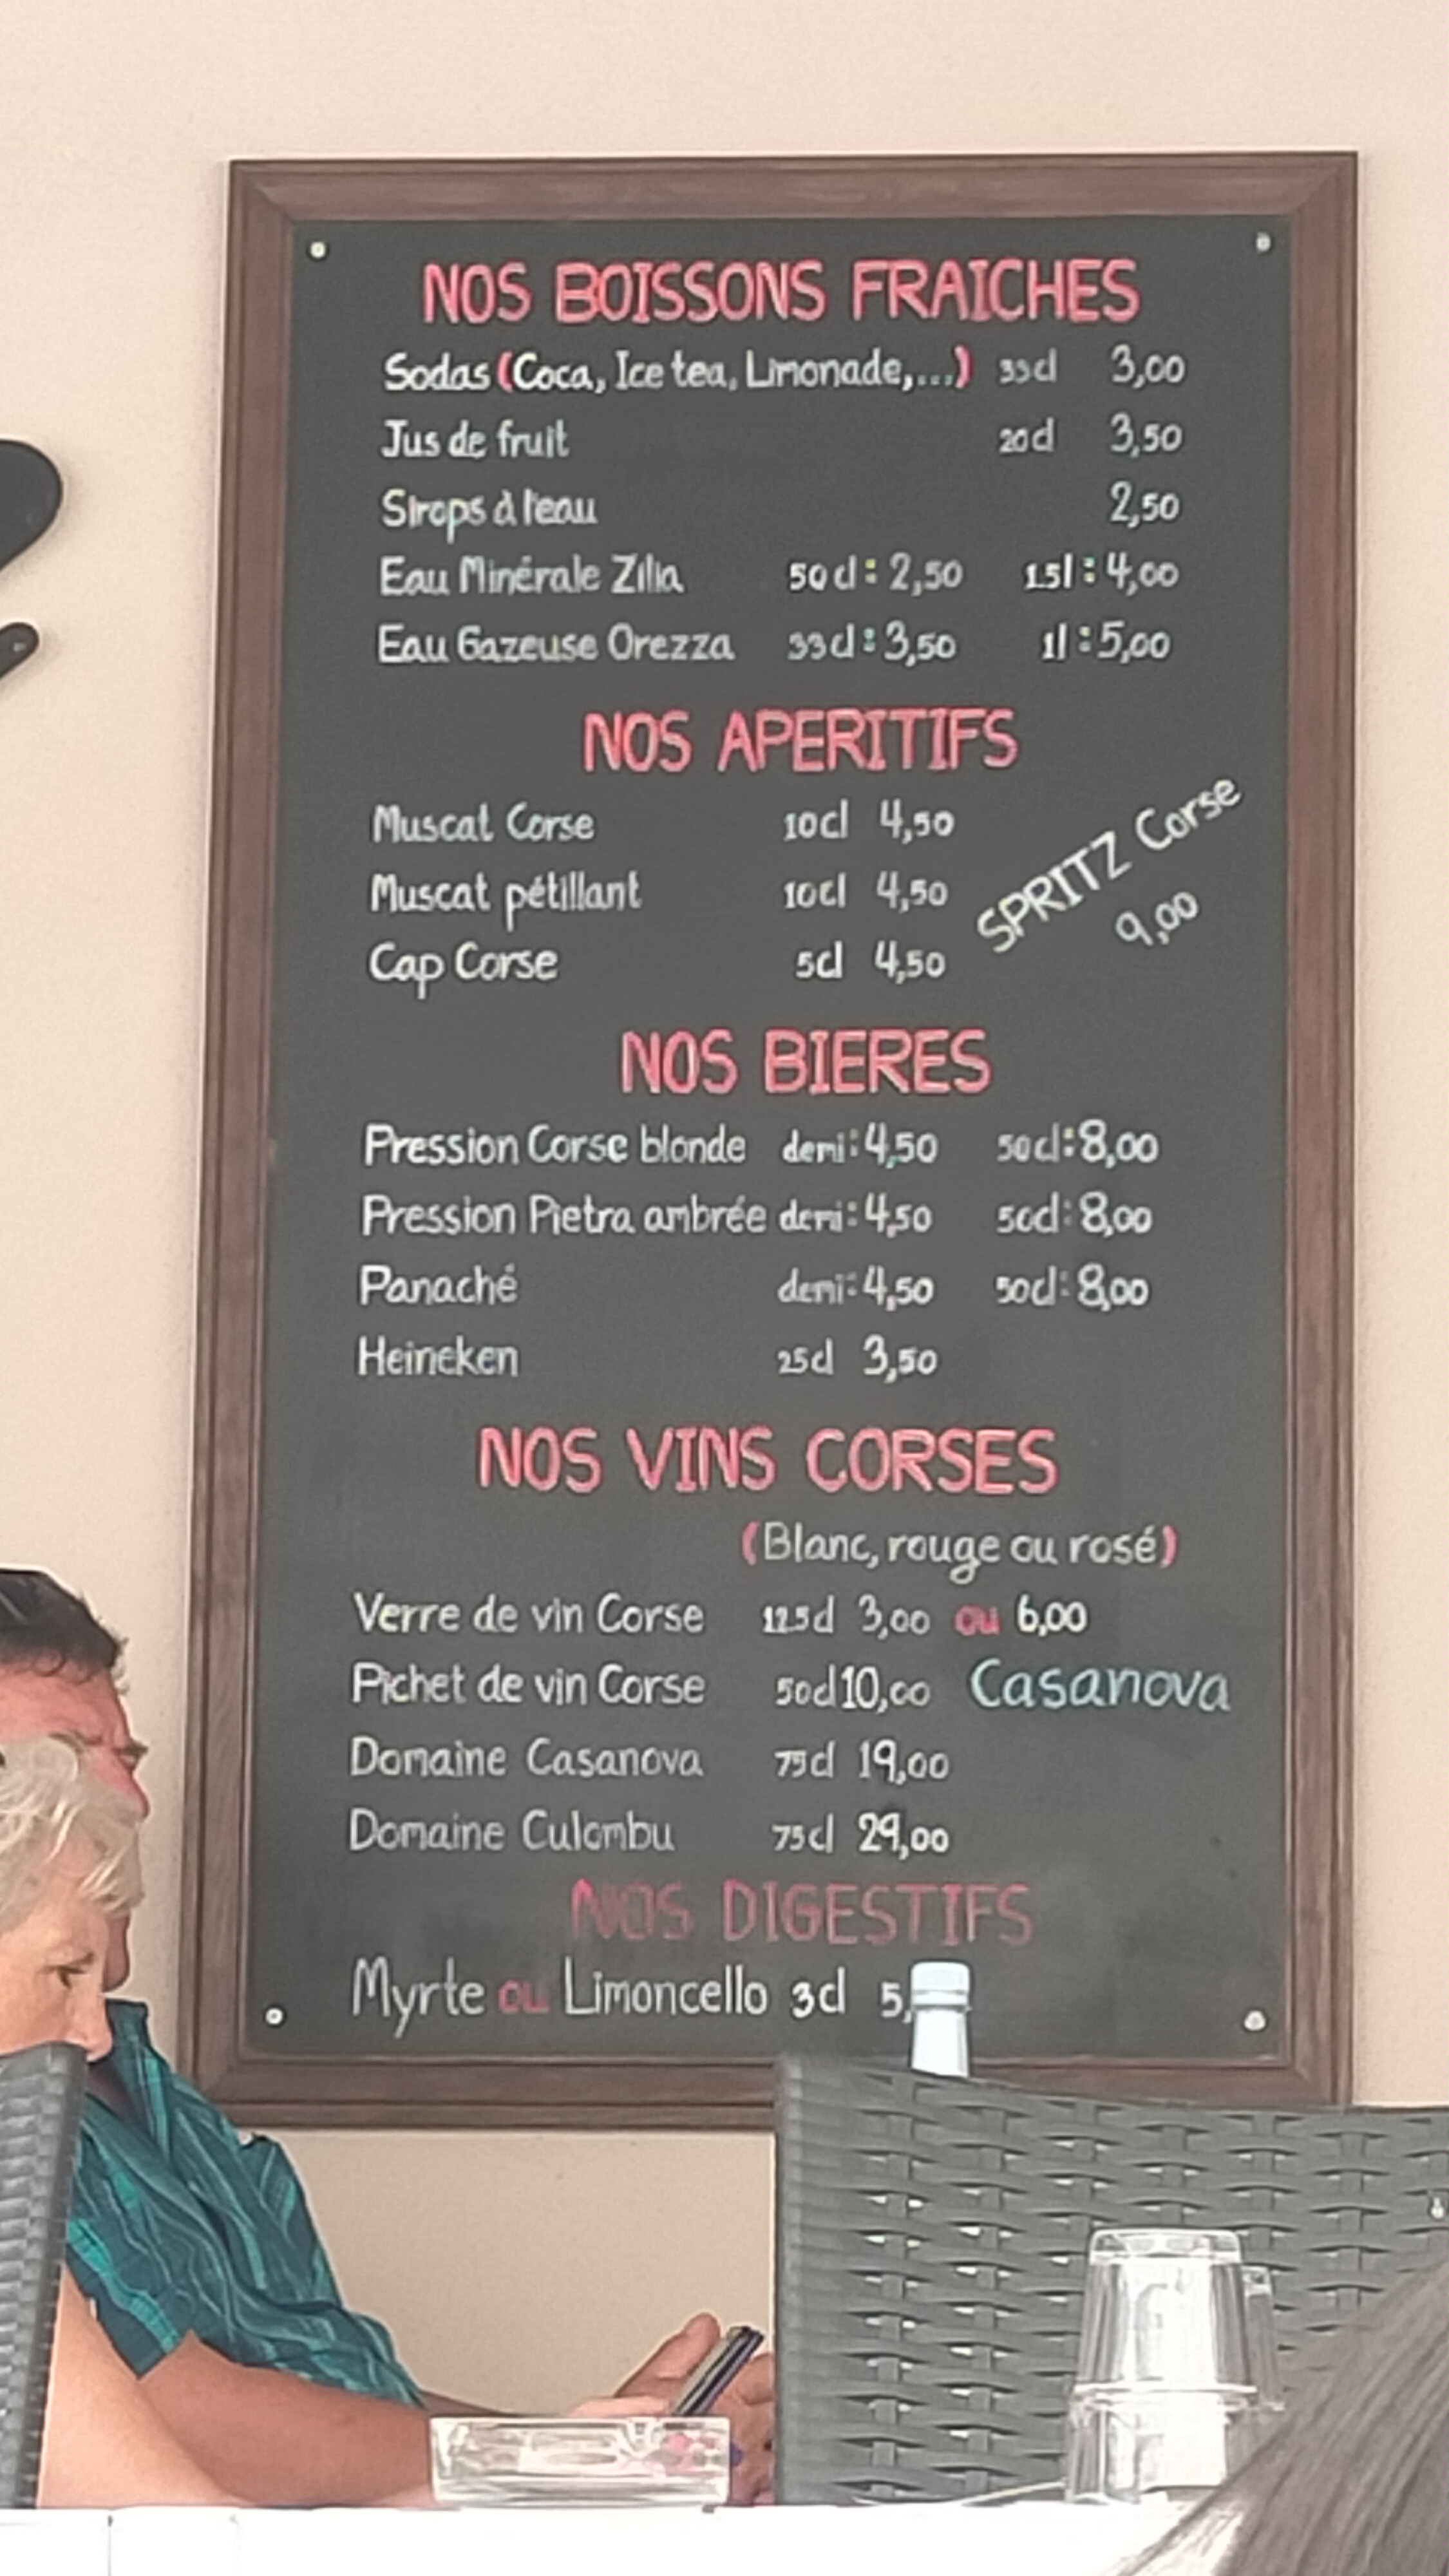 NOS BOISSONS FRAICHES
Sodas (Coca, Ice tea, Limonade,...) 33cl 3,00
Jus de fruit 20cl 3,50
Sirops à l'eau 2,50
Eau Minérale Zilia 50cl: 2,50 1.5l: 4,00
Eau Gazeuse Orezza 33cl: 3,50 1l: 5,00
NOS APERITIFS
Muscat Corse 10cl 4,50
Muscat pétillant 10cl 4,50
Cap Corse 5cl 4,50
SPRITZ Corse
9,00
NOS BIERES
Pression Corse blonde demi: 4,50 50cl: 8,00
Pression Pietra ambrée demi: 4,50 50cl: 8,00
Panaché demi: 4,50 50cl: 8,00
Heineken 25cl 3,50
NOS VINS CORSES
(Blanc, rouge ou rosé)
Verre de vin Corse 12.5cl 3,00 ou 6,00
Pichet de vin Corse 50cl 10,00 Casanova
Domaine Casanova 75cl 19,00
Domaine Culombu 75cl 29,00
NOS DIGESTIFS
Myrte ou Limoncello 3cl 5,